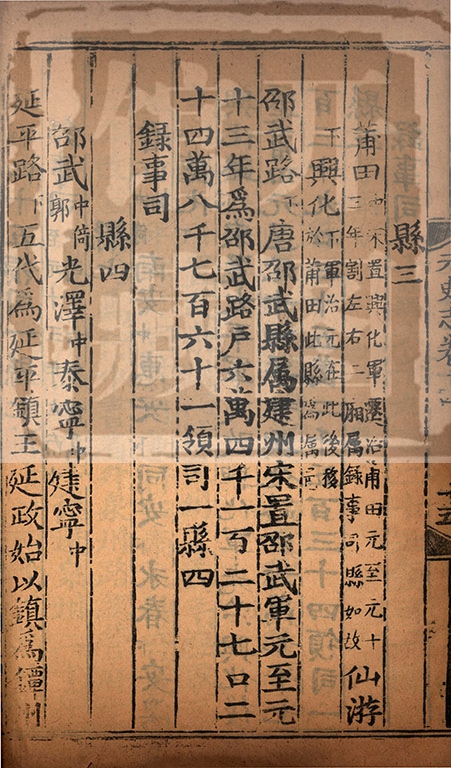 元史志卷十四
十五
縣三
莆田中宋置興化軍遷治莆田元至元十三年割左右二廂屬錄事司縣如故仙游
下興化下軍治元在此後移於莆田此縣為屬元
邵武路下唐邵武縣屬建州宋置邵武軍元至元
十三年為邵武路戶六萬四千一百二十七口二
十四萬八千七百六十一領司一縣四
錄事司
縣四
邵武中倚郭光澤中泰寧中建寧中
延平路下五代為延平鎮王延政始以鎮為鐔州